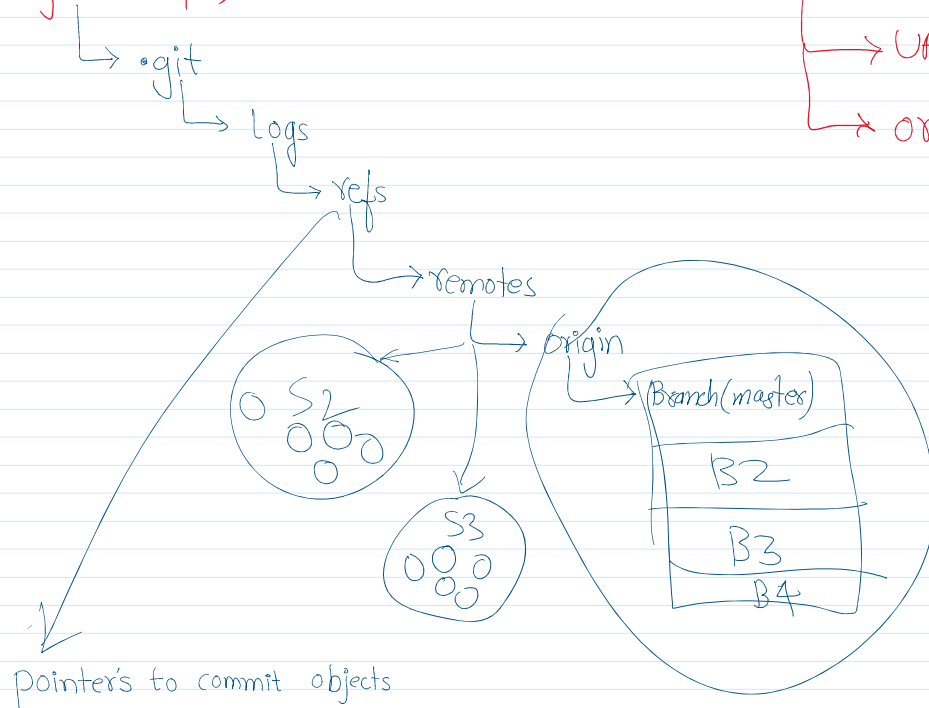 .git
logs
refs
remotes
origin
Branch(master)
S2
B2
S3
B3
B4
pointer's to commit objects